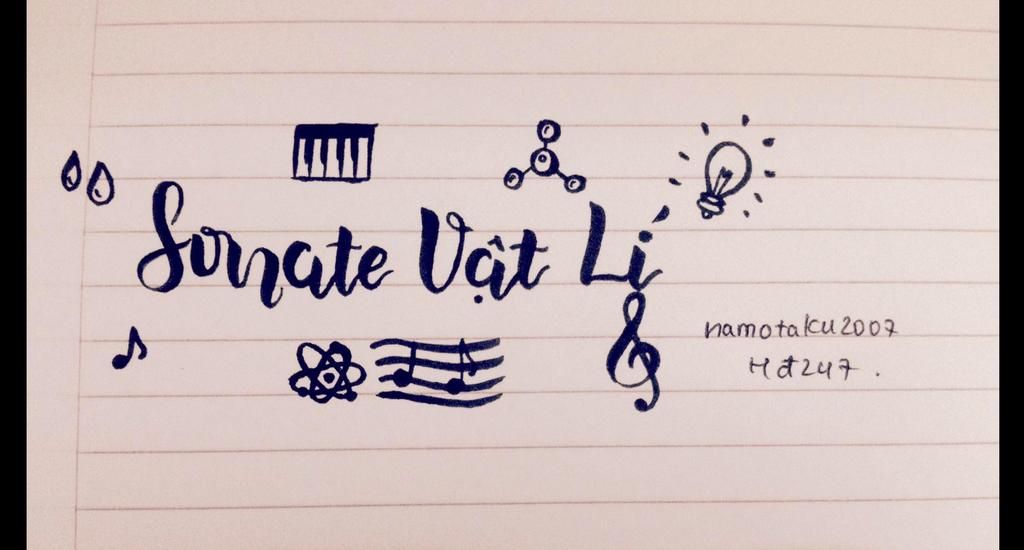 Sonate Vật Lí
namotaku2007
Hđ247.